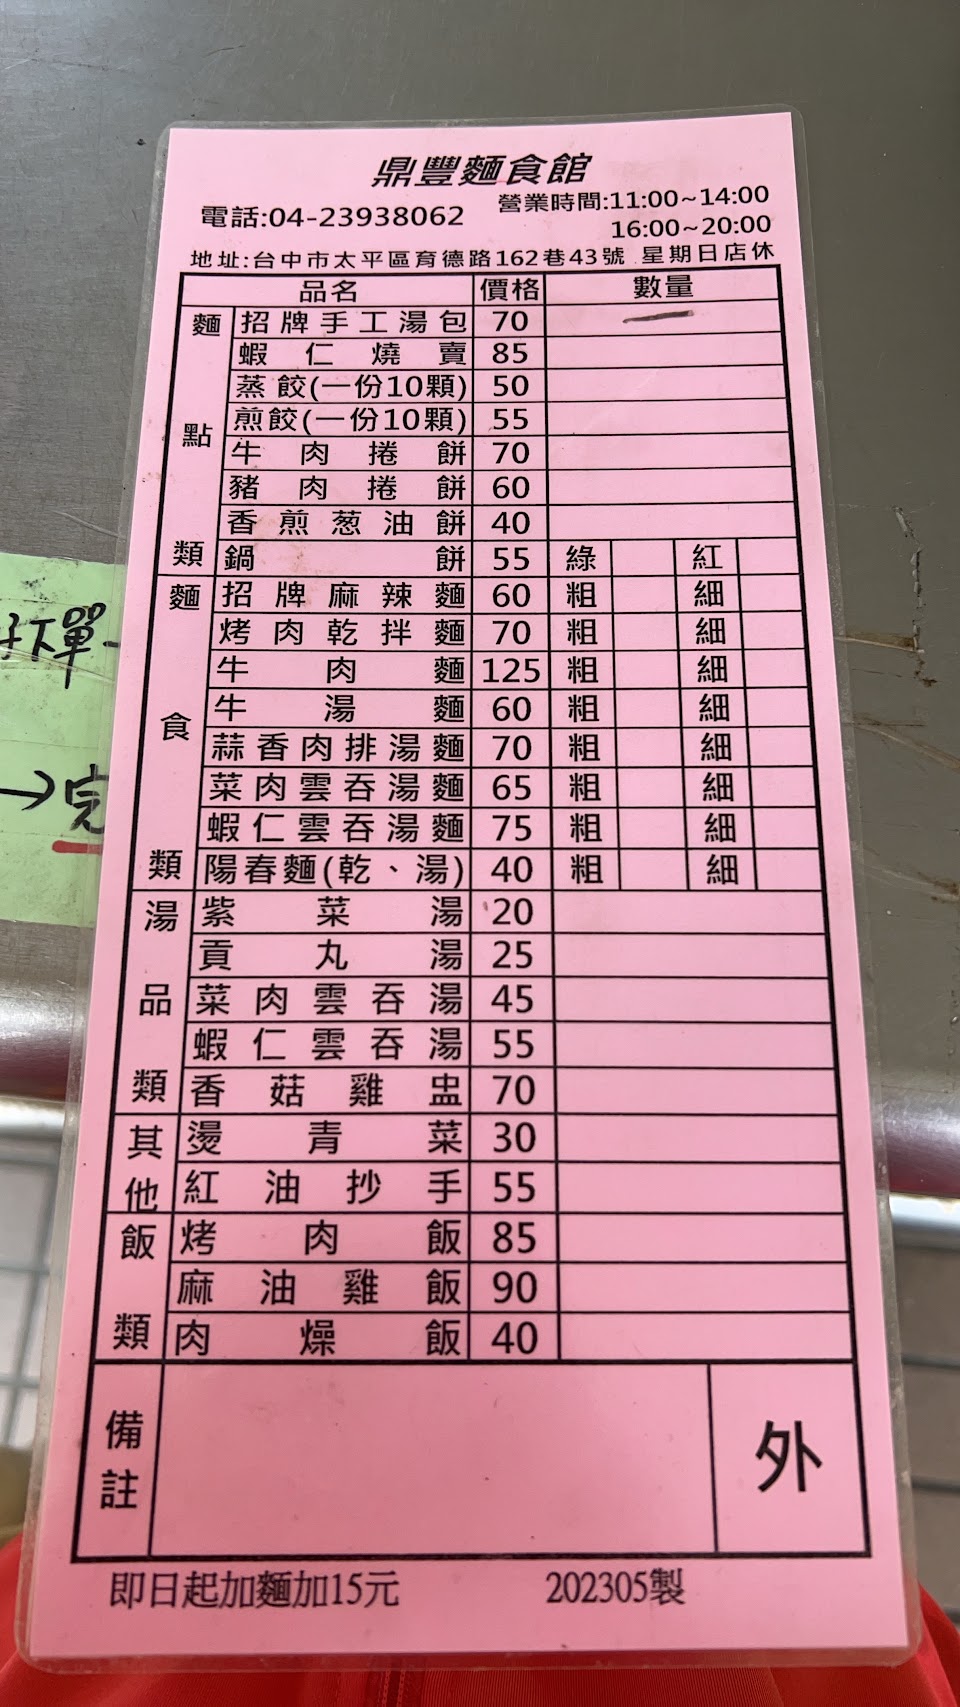 鼎豐麵食館
電話:04-23938062 營業時間:11:00~14:00
16:00~20:00
地址:台中市太平區育德路162巷43號 星期日店休
品名 價格 數量
麵點類
招牌手工湯包 70 一
蝦仁燒賣 85
蒸餃(一份10顆) 50
煎餃(一份10顆) 55
牛肉捲餅 70
豬肉捲餅 60
香煎葱油餅 40
鍋餅 55 綠 紅
麵食類
招牌麻辣麵 60 粗 細
烤肉乾拌麵 70 粗 細
牛肉麵 125 粗 細
牛湯麵 60 粗 細
蒜香肉排湯麵 70 粗 細
菜肉雲吞湯麵 65 粗 細
蝦仁雲吞湯麵 75 粗 細
陽春麵(乾、湯) 40 粗 細
湯品類
紫菜湯 20
貢丸湯 25
菜肉雲吞湯 45
蝦仁雲吞湯 55
香菇雞盅 70
其他
燙青菜 30
紅油抄手 55
飯類
烤肉飯 85
麻油雞飯 90
肉燥飯 40
備註 外
即日起加麵加15元 202305製
下單
→完